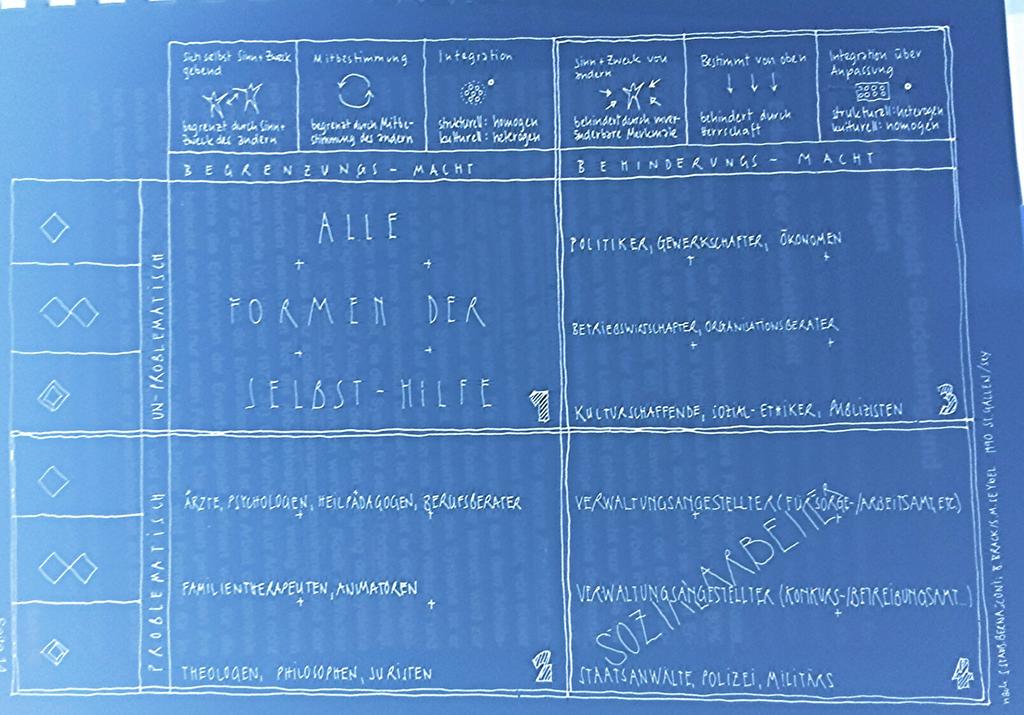 Sich selbst Sinn + Zweck
gebend
begrenzt durch Sinn +
Zweck des andern
Mitbestimmung
begrenzt durch Mitbe-
stimmung des andern
Integration
strukturell: homogen
kulturell: heterogen
Sinn + Zweck von
andern
behindert durch unver-
änderbare Merkmale
Bestimmt von oben
behindert durch
Herrschaft
Integration über
Anpassung
strukturell: heterogen
kulturell: homogen
BEGRENZUNGS-MACHT
BEHINDERUNGS-MACHT
UN-PROBLEMATISCH
ALLE
FORMEN DER
SELBST-HILFE
1
POLITIKER, GEWERKSCHAFTER, ÖKONOMEN
BETRIEBSWIRTSCHAFTER, ORGANISATIONSBERATER
KULTURSCHAFFENDE, SOZIAL-ETHIKER, PUBLIZISTEN
3
PROBLEMATISCH
ÄRZTE, PSYCHOLOGEN, HEILPÄDAGOGEN, BERUFSBERATER
FAMILIENTHERAPEUTEN, ANIMATOREN
THEOLOGEN, PHILOSOPHEN, JURISTEN
2
VERWALTUNGSANGESTELLTER (FÜRSORGE-/ARBEITSAMT, ETC)
VERWALTUNGSANGESTELLTER (KONKURS-/BETREIBUNGSAMT...)
STAATSANWÄLTE, POLIZEI, MILITÄRS
4
SOZIALARBEIT
nach S. STAUB-BERNASCONI, R. BRACK/S. M. 1990 ST. GALLEN /